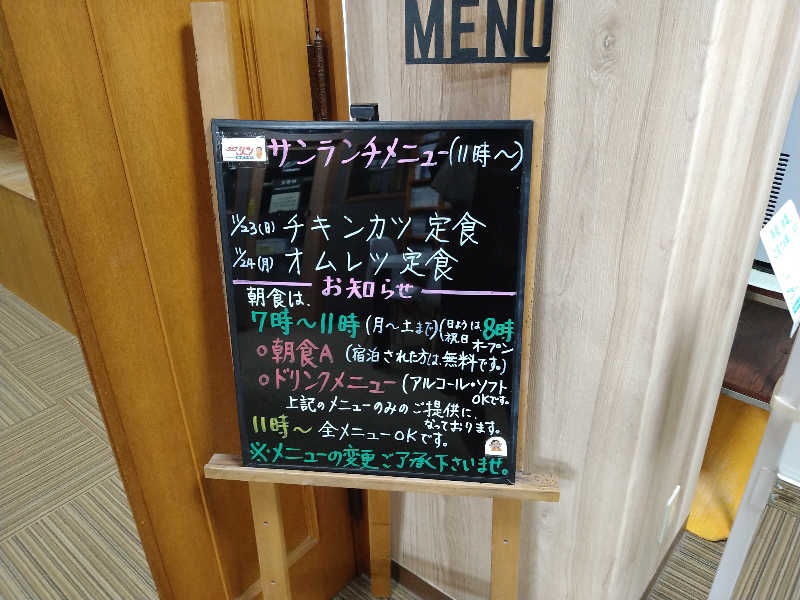 MENU
サンランチメニュー(11時〜)
11/23(日) チキンカツ定食
11/24(月) オムレツ定食
お知らせ
朝食は、
7時〜11時(月〜土まで)(日ようは祝日8時オープン)
○朝食A(宿泊された方は無料です。)
○ドリンクメニュー(アルコール・ソフトOKです。
上記のメニューのみのご提供に、
なっております。
11時〜 全メニューOKです。
※メニューの変更ご了承下さいませ。